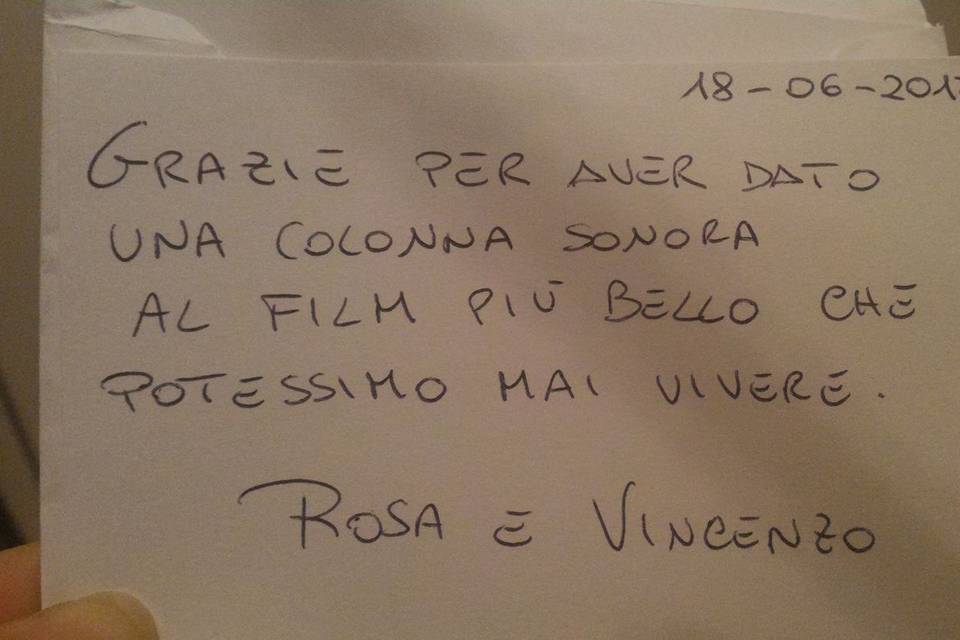 18-06-201
GRAZIE PER AVER DATO
UNA COLONNA SONORA
AL FILM PIÙ BELLO CHE
POTESSIMO MAI VIVERE.
ROSA E VINCENZO